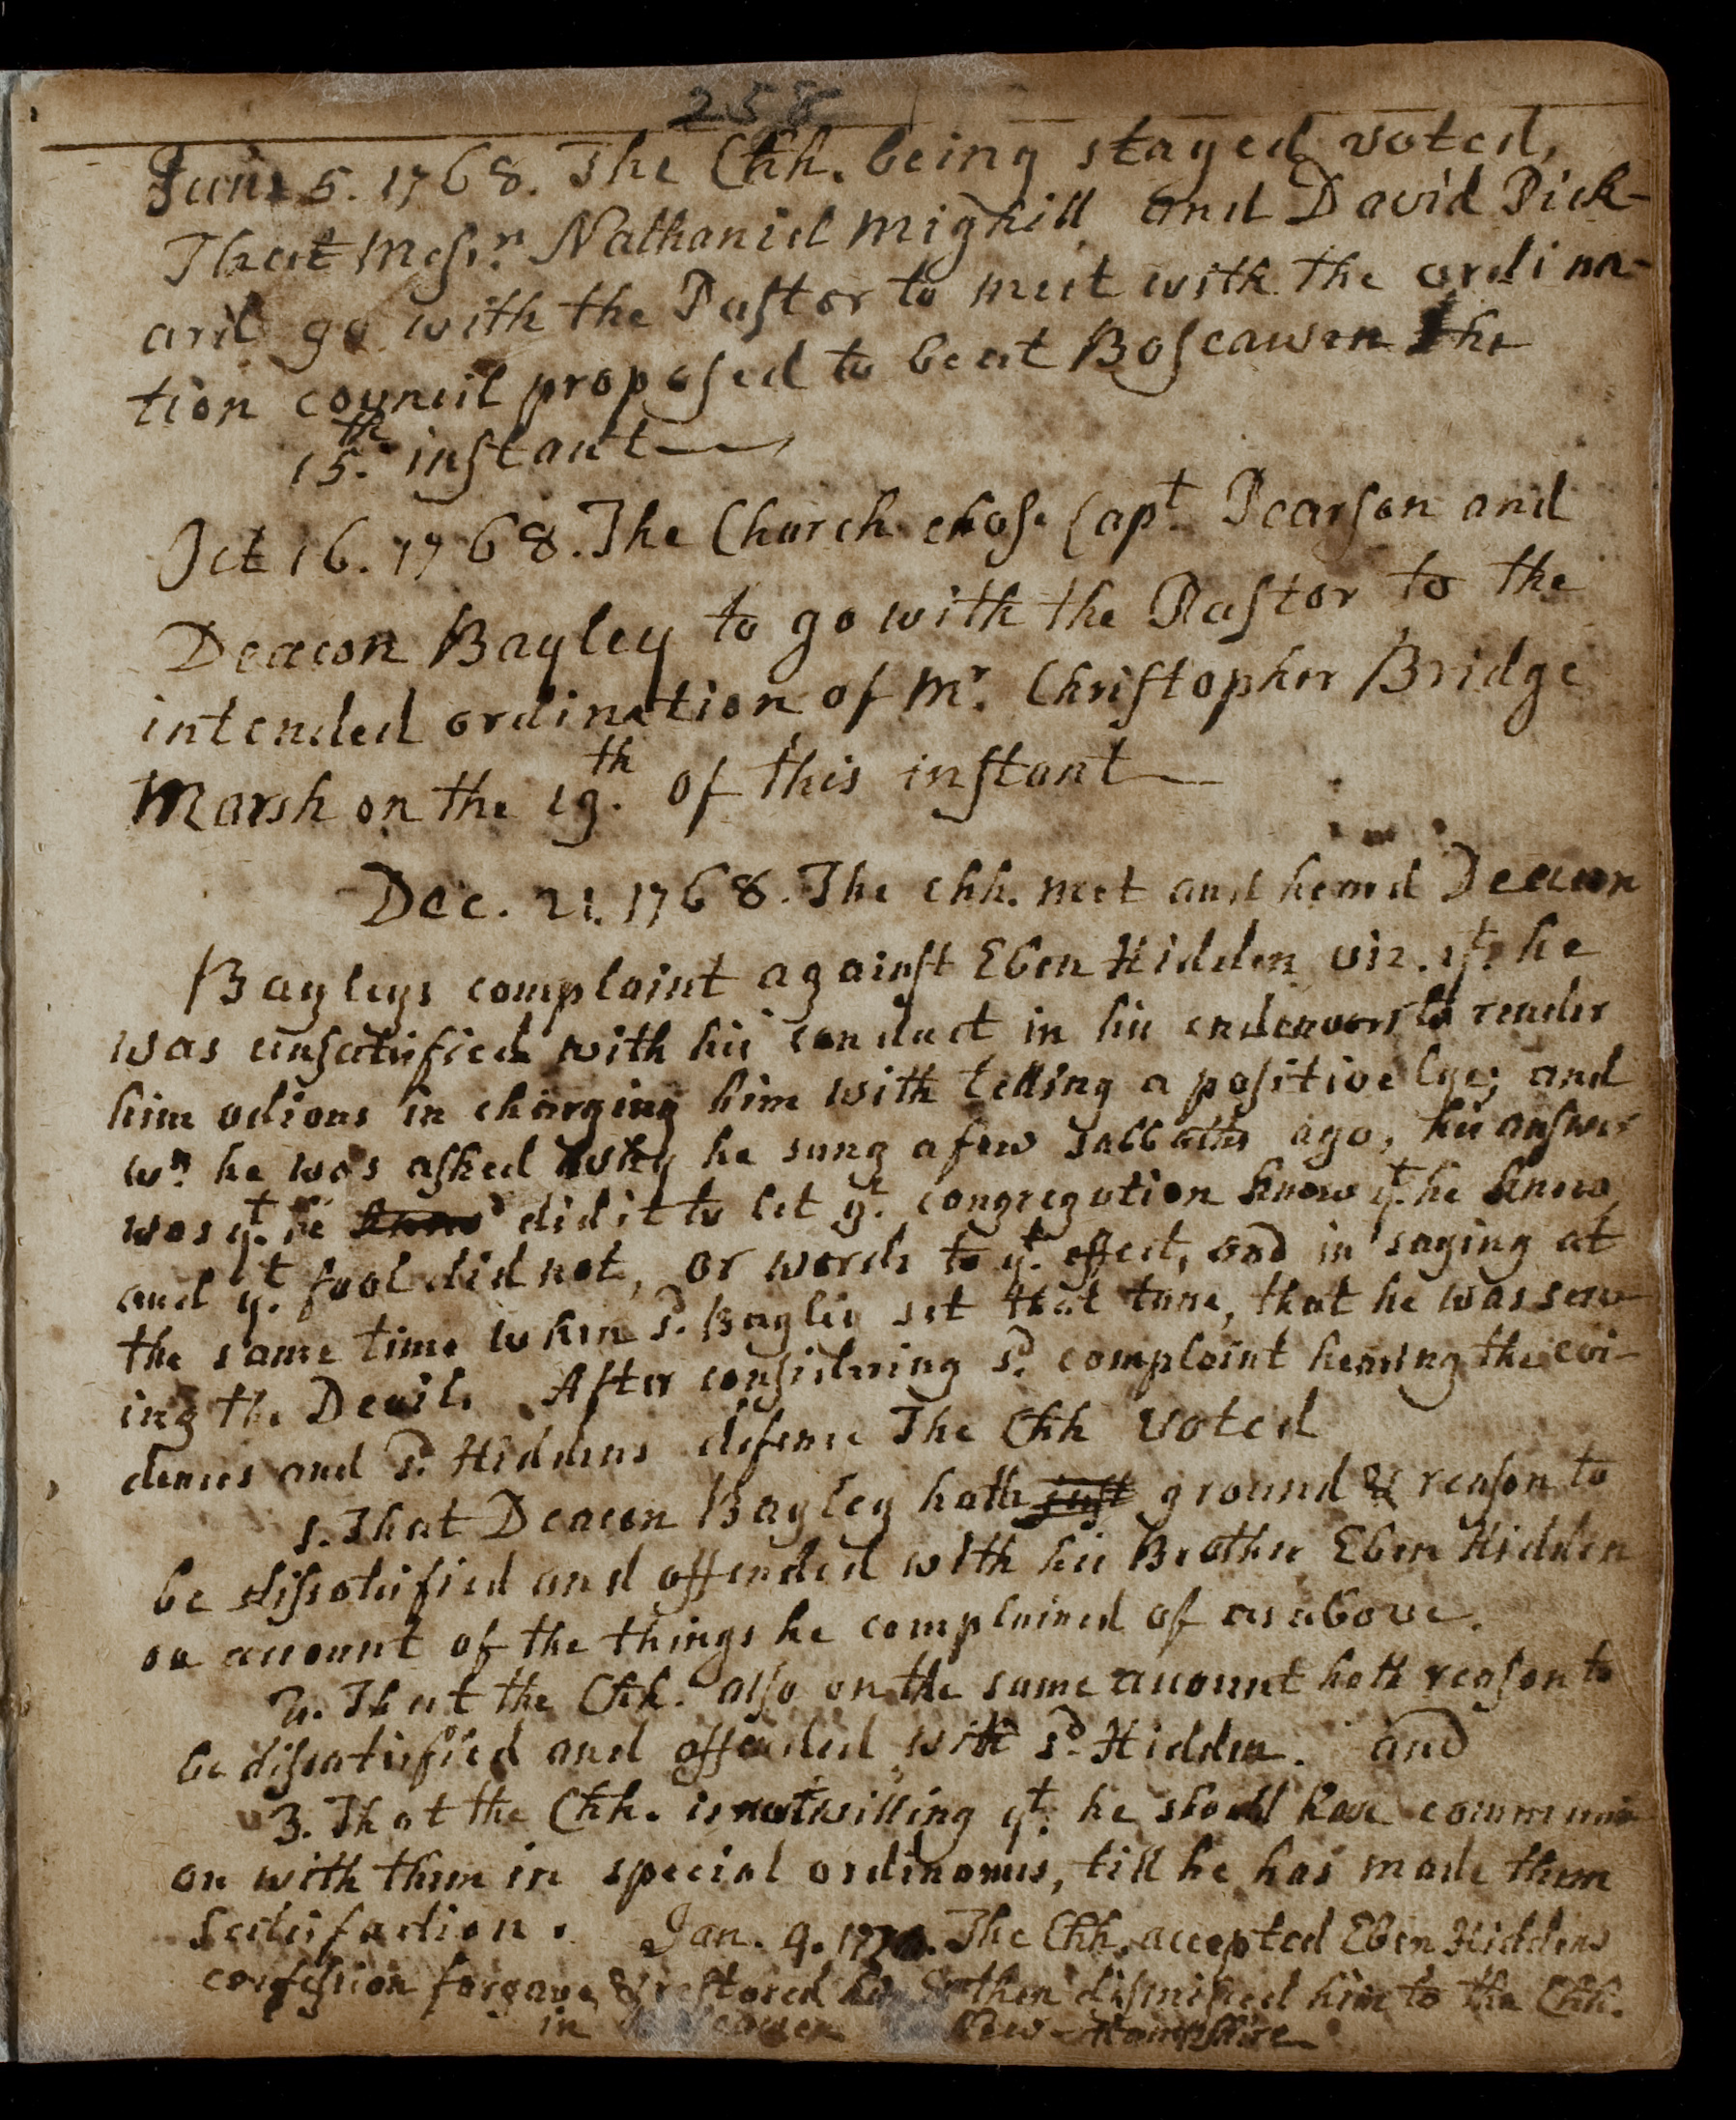 258
June 5. 1768. The Chh. being stayed voted,
That Messrs. Nathaniel Mighill and David Pick-
ard go with the Pastor to meet with the ordina-
tion council proposed to be at Boscawen the
15th. instant
Oct 16. 1768. The Church chose Capt. Pearson and
Deacon Bayley to go with the Pastor to the
intended ordination of Mr. Christopher Bridge
Marsh on the 19th. of this instant
Dec. 21. 1768. The chh. met and heard Deacon
Bayleys complaint against Eben Hidden viz. yt. he
was unsatisfied with his conduct in his endeavors to render
him odious in charging him with telling a positive lye; and
wn. he was asked why he sung a few sabbaths ago, his answer
was yt. he knew did it to let ye. congregation know yt. he knew
and yt. fool did not, or words to yt. effect, and in saying at
the same time when sd. Bayley set that tune, that he was serv-
ing the Devil. After considering sd. complaint hearing the evi-
dences and sd. Hiddens defence The Chh voted
1. That Deacon Bayley hath just ground & reason to
be dissatisfied and offended with his Brother Eben Hidden
on account of the things he complained of as above.
2. That the Chh. also on the same account hath reason to
be dissatisfied and offended with sd. Hidden. and
3. That the Chh. is not willing yt. he should have communi-
on with them in special ordinances, till he has made them
satisfaction. Jan. 9. The Chh. accepted Eben Hiddens
confession forgave & restored him & then dismissed him to the Chh.
in Boscawen New-Hampshire